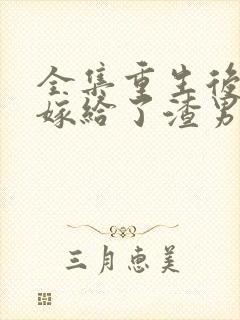 全集重生後
嫁给了渣男
三月恵美